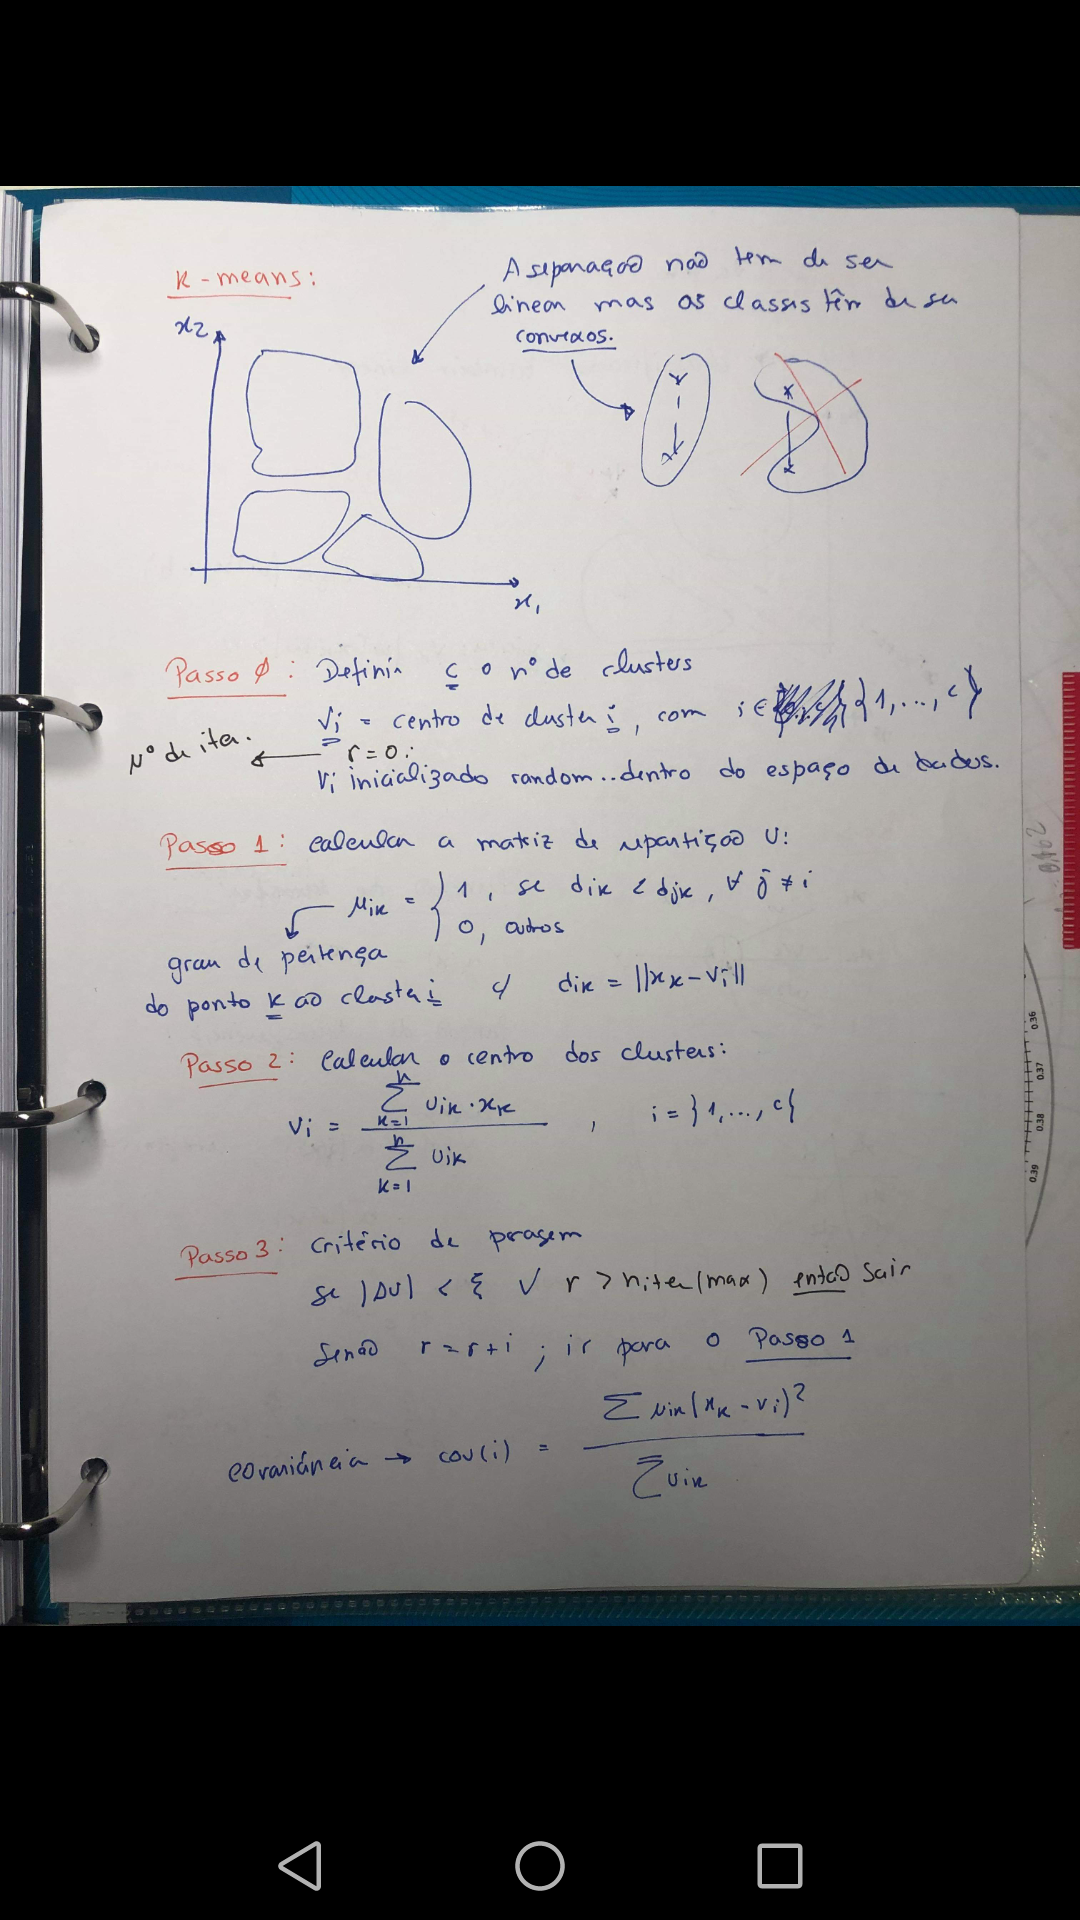 k-means:
A separação não tem de ser
linear mas as classes têm de ser
convexas.
x2
x1
Passo 0: Definir c o nº de clusters
Vi = centro de cluster i, com i ∈ {1, ..., c}
Nº de iter. ← r = 0;
Vi inicializado random.. dentro do espaço de dados.
Passo 1: calcular a matriz de repartição U:
μik = { 1, se dik < djk, ∀ j ≠ i
0, outros
grau de pertença
do ponto k ao cluster i c/ dik = ||xk - vi||
Passo 2: Calcular o centro dos clusters:
Vi = Σ(k=1, n) uik · xk / Σ(k=1, n) uik , i = {1, ..., c}
Passo 3: critério de paragem
se |ΔU| < ξ ∨ r > niter(max) então sair
senão r = r + i ; ir para o Passo 1
covariância → cov(i) = Σ μik(xk - vi)² / Σ uik
0.36
0.37
0.38
0.39